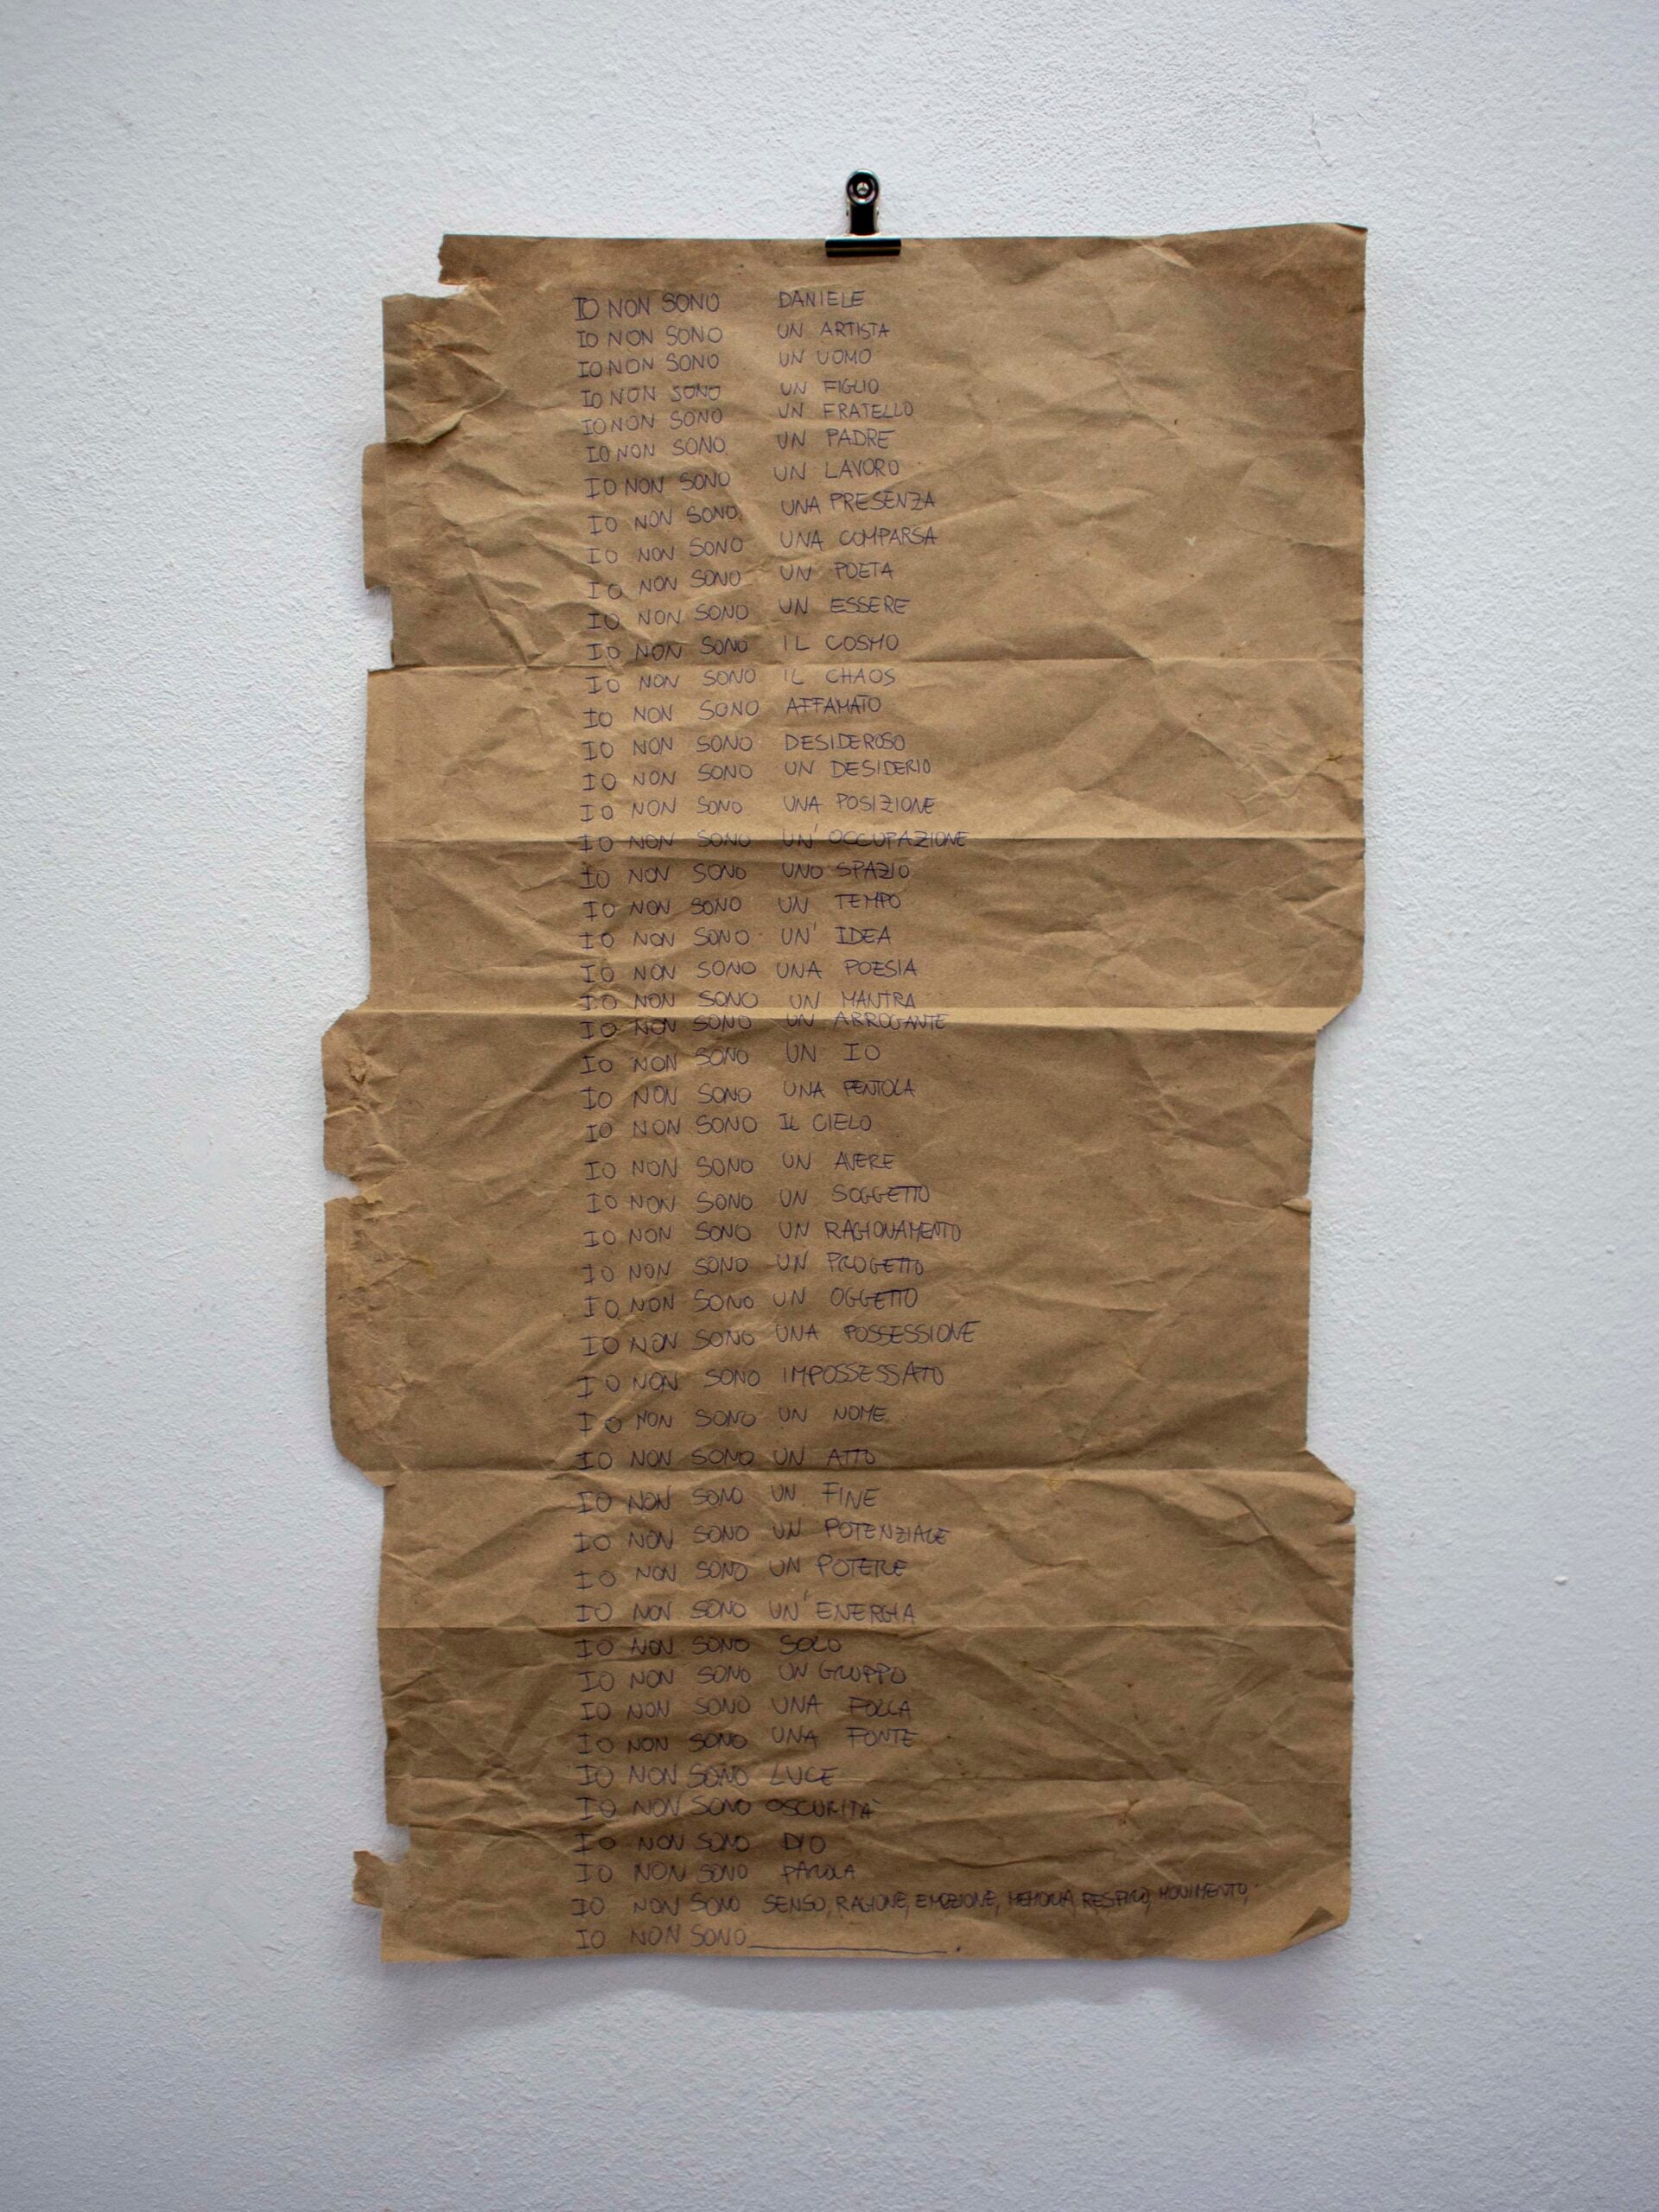 IO NON SONO DANIELE
IO NON SONO UN ARTISTA
IO NON SONO UN UOMO
IO NON SONO UN FIGLIO
IO NON SONO UN FRATELLO
IO NON SONO UN PADRE
IO NON SONO UN LAVORO
IO NON SONO UNA PRESENZA
IO NON SONO UNA COMPARSA
IO NON SONO UN POETA
IO NON SONO UN ESSERE
IO NON SONO IL COSMO
IO NON SONO IL CHAOS
IO NON SONO AFFAMATO
IO NON SONO DESIDEROSO
IO NON SONO UN DESIDERIO
IO NON SONO UNA POSIZIONE
IO NON SONO UN' OCCUPAZIONE
IO NON SONO UNO SPAZIO
IO NON SONO UN TEMPO
IO NON SONO UN' IDEA
IO NON SONO UNA POESIA
IO NON SONO UN MANTRA
IO NON SONO UN ARROGANTE
IO NON SONO UN IO
IO NON SONO UNA PENTOLA
IO NON SONO IL CIELO
IO NON SONO UN AVERE
IO NON SONO UN SOGGETTO
IO NON SONO UN RAGIONAMENTO
IO NON SONO UN PROGETTO
IO NON SONO UN OGGETTO
IO NON SONO UNA POSSESSIONE
IO NON SONO IMPOSSESSATO
IO NON SONO UN NOME
IO NON SONO UN ATTO
IO NON SONO UN FINE
IO NON SONO UN POTENZIALE
IO NON SONO UN POTERE
IO NON SONO UN' ENERGIA
IO NON SONO SOLO
IO NON SONO UN GRUPPO
IO NON SONO UNA FOLLA
IO NON SONO UNA FONTE
IO NON SONO LUCE
IO NON SONO OSCURITÀ
IO NON SONO DIO
IO NON SONO PAROLA
IO NON SONO SENSO, RAGIONE, EMOZIONE, MEMORIA, RESPIRO, MOVIMENTO,
IO NON SONO______________.